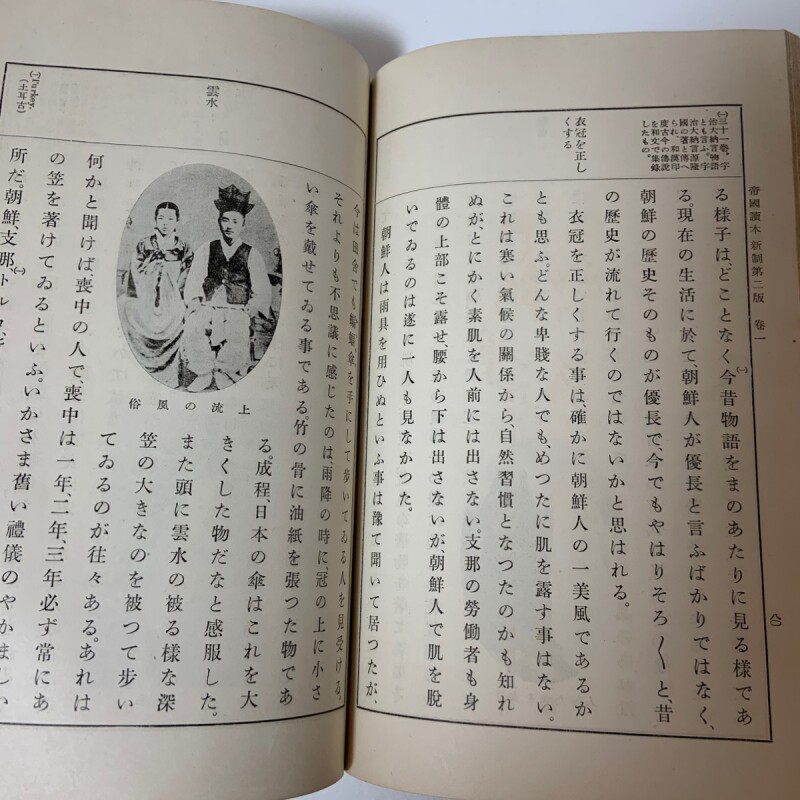 帝國讀本 新制第二版 卷一
㈠三十一卷、宇
治大納言物語
とも言ふ。宇
治大納言源隆
國の著と傳へ
られ、和漢印
度古今の傳說
を和文で集錄
したもの。
衣冠を正し
くする
る樣子は、どことなく今昔物語をまのあたりに見る樣であ
る。現在の生活に於て、朝鮮人が優長と言ふばかりではなく、
朝鮮の歷史そのものが優長で、今でもやはりそろ〱と、昔
の歷史が流れて行くのではないかと思はれる。
衣冠を正しくする事は、確かに朝鮮人の一美風であるか
とも思ふ。どんな卑賤な人でも、めつたに肌を露す事はない。
これは寒い氣候の關係から、自然習慣となつたのかも知れ
ぬが、とにかく素肌を人前には出さない。支那の勞働者も身
體の上部こそ露せ、腰から下は出さないが、朝鮮人で肌を脫
いでゐるのは遂に一人も見なかつた。
朝鮮人は雨具を用ひぬといふ事は豫て聞いて居つたが、
雲水
㈠Turkey.
(土耳古)
今は田舍でも蝙蝠傘を手にして步いてゐる人を見受ける。
それよりも不思議に感じたのは、雨降の時に、冠の上に小さ
い傘を戴せてゐる事である。竹の骨に油紙を張つた物であ
る。成程、日本の傘はこれを大
きくした物だなと感服した。
また頭に雲水の被る樣な深
笠の大きなのを被つて步い
てゐるのが往々ある。あれは
上流の風俗
何かと聞けば、喪中の人で、喪中は一年、二年、三年必ず常にあ
の笠を著けてゐるといふ。いかさま舊い禮儀のやかましい
所だ。朝鮮、支那、トルコ